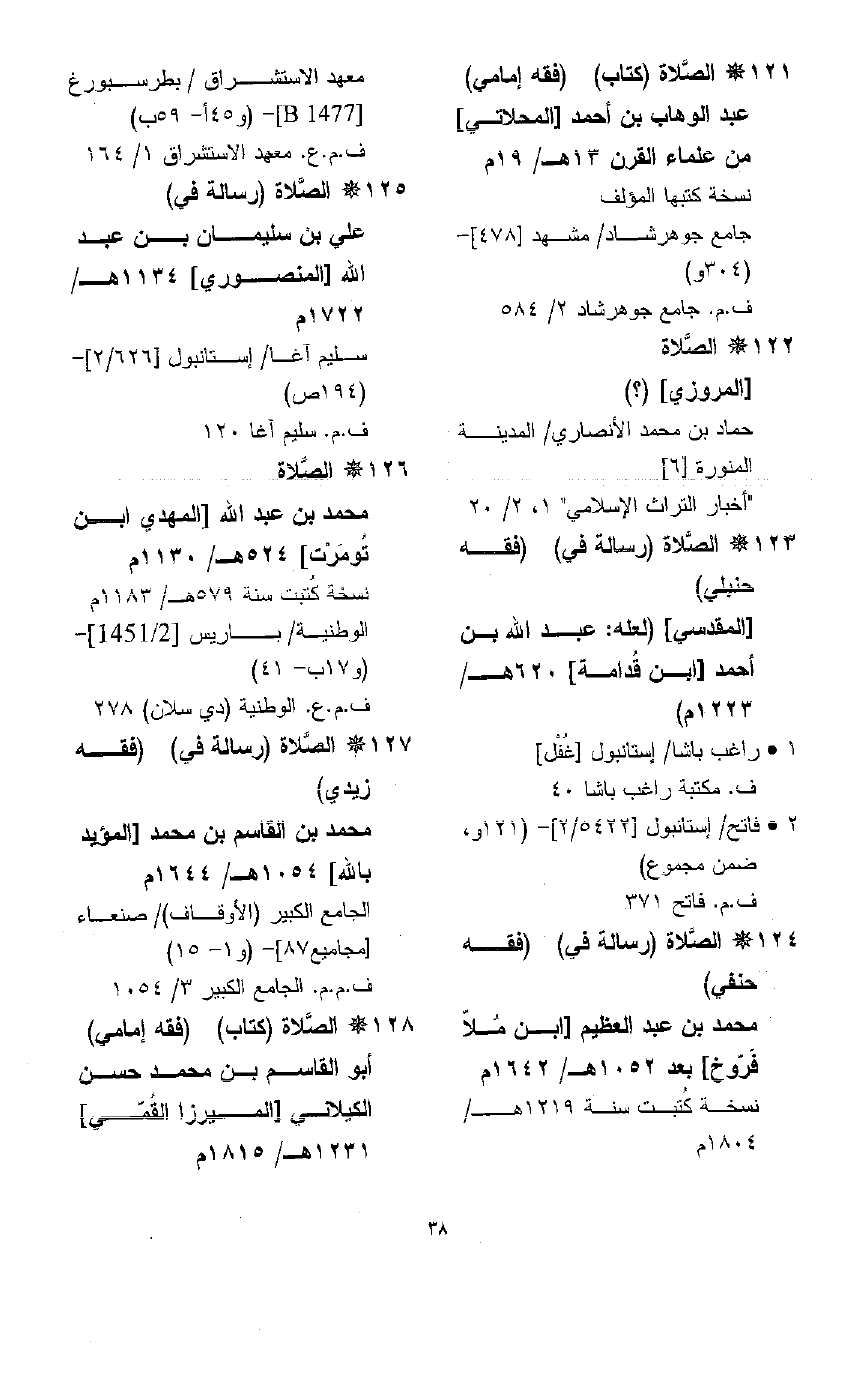 ١٢١ ❋ الصَّلاة (كتاب) (فقه إمامي)
عبد الوهاب بن أحمد [المحلاتي]
من علماء القرن ١٣هـ/ ١٩م
نسخة كتبها المؤلف
جامع جوهرشاد/ مشهد [٤٧٨]-
(٣٠٤و)
ف.م. جامع جوهرشاد ٢/ ٥٨٤
١٢٢ ❋ الصَّلاة
[المروزي] (؟)
حماد بن محمد الأنصاري/ المدينة
المنورة [٦]
"أخبار التراث الإسلامي" ١، ٢/ ٢٠
١٢٣ ❋ الصَّلاة (رسالة في) (فقه
حنبلي)
[المقدسي] (لعله: عبد الله بن
أحمد [ابن قُدامة] ٦٢٠هـ/
١٢٢٣م)
١ • راغب باشا/ إستانبول [غُفْل]
ف. مكتبة راغب باشا ٤٠
٢ • فاتح/ إستانبول [٢/٥٤٢٢]- (١٢١و،
ضمن مجموع)
ف.م. فاتح ٣٧١
١٢٤ ❋ الصَّلاة (رسالة في) (فقه
حنفي)
محمد بن عبد العظيم [ابن مُلاّ
فَرّوخ] بعد ١٠٥٢هـ/ ١٦٤٢م
نسخة كُتبت سنة ١٢١٩هـ/
١٨٠٤م
معهد الاستشراق / بطرسبورغ
[B 1477]- (و٤٥أ- ٥٩ب)
ف.م.ع. معهد الاستشراق ١/ ١٦٤
١٢٥ ❋ الصَّلاة (رسالة في)
علي بن سليمان بن عبد
الله [المنصوري] ١١٣٤هـ/
١٧٢٢م
سليم آغا/ إستانبول [٢/٦٢٦]-
(١٩٤ص)
ف.م. سليم آغا ١٢٠
١٢٦ ❋ الصَّلاة
محمد بن عبد الله [المهدي ابن
تُومَرْت] ٥٢٤هـ/ ١١٣٠م
نسخة كُتبت سنة ٥٧٩هـ/ ١١٨٣م
الوطنية/ باريس [1451/2]-
(و١٧ب- ٤١)
ف.م.ع. الوطنية (دي سلان) ٢٧٨
١٢٧ ❋ الصَّلاة (رسالة في) (فقه
زيدي)
محمد بن القاسم بن محمد [المؤيد
بالله] ١٠٥٤هـ/ ١٦٤٤م
الجامع الكبير (الأوقاف)/ صنعاء
[مجاميع٨٧]- (و١- ١٥)
ف.م.م. الجامع الكبير ٣/ ١٠٥٤
١٢٨ ❋ الصَّلاة (كتاب) (فقه إمامي)
أبو القاسم بن محمد حسن
الكيلاني [الميرزا القُمّي]
١٢٣١هـ/ ١٨١٥م
٣٨